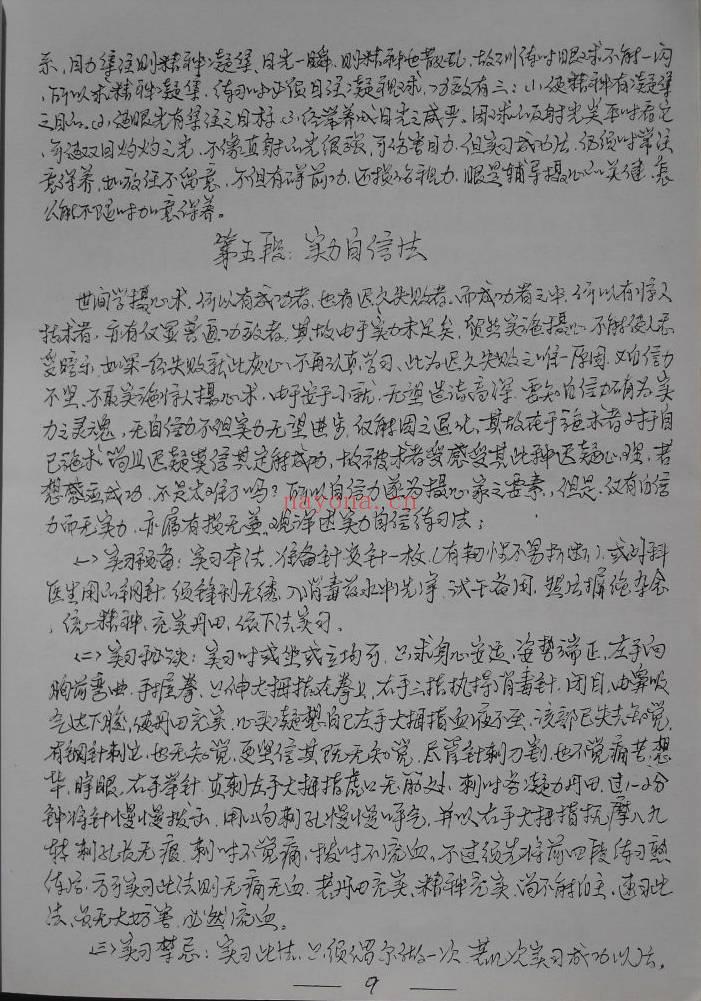 系,目力集注则精神凝集,目光一瞬,则精神也散乱,故训练时眼球不能一闪
,所以求精神凝集,练习时必须目注凝视球,功效有三:(1)使精神有凝集
之目的.(2)使眼光有集注之目标(3)经常养成目光之威严,因球的反射光关平时看它
可使双目灼灼之光,不像直射的光很强,可伤害目力,但实习成功法,仍须时常注
意保养,如放任不留意,不但有碍前功,还损伤视力,眼是辅导摄心的关健,怎
么能不随时加意保养。
第五段:实力自信法
世间学摄心术,何以有成功者,也有迟久失败者,而成功者之中,何以有惊人
技术者,亦有仅显普通功效者,其故由于实力未足矣,贸然实施摄心,不能使人忘
受暗示,如果一经失败就此灰心,不再认真学习,此为迟久失败之唯一原因,又自信力
不坚,不敢实施惊人摄心术,由于安于小就,无望造诣高深,要知自信力确为实
力之灵魂,无自信力不但实力无望进步,仅能因之退化,其故在于施术者对于自
己施术,尚且迟疑莫信其定能成功,故被术者受感受其此种迟疑心理,若
想感应成功,不是太难了吗?所以自信力实为摄心家之要素,但是,仅有自信
力而无实力,亦属有损无益,现详述实力自信练习法:
(一)实习预备:实习本法,准备针灸针一枚,(有韧性不易折断),或外科
医生用的钢针,须锋利无锈,入消毒药水中洗净,拭干备用,照法摒绝杂念
,统一精神,充实丹田,依下法实习。
(二)实习秘诀:实习时或坐或立均可,只求身心安适,姿势端正,左手向
胸前弯曲,手握拳,只伸大拇指在拳上,右手三指执持消毒针,闭目,由鼻吸
气达下腹,使丹田充实,心头凝想自己左手大拇指血液不至,该部已失去知觉,
有钢针刺它,也无知觉,更坚信其既无知觉,尽管针刺刀割,也不觉痛苦,想
毕,睁眼,右手举针,直刺左手大拇指虎口无筋处,刺时劳凝力丹田,过1-2分
钟将针慢慢拔出,用口向刺孔慢慢呼气,并以右手大拇指抚摩八九
转,刺孔长无痕,刺时不觉痛,拔时不流血,不过须先将前四段练习熟
练后,方可实习此法则无痛无血,若丹田充实,精神充实,尚不能自主,速习此
法,虽无大妨害,必然流血。
(三)实习禁忌:实习此法,只须偶尔做一次,若几次实习成功以后,
9
nayona.cn